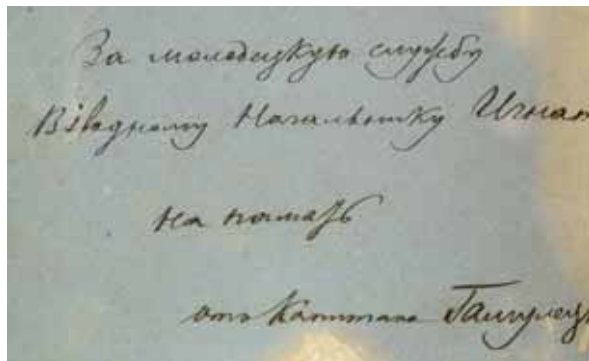 За молодецкую службу
Взводному Начальнику Игнат
на память
отъ Капитана